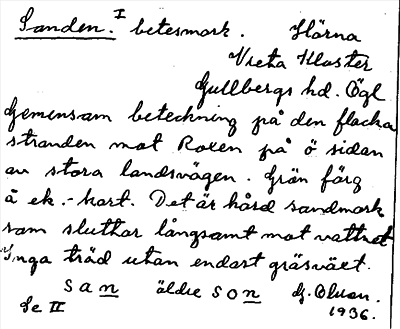 Sanden. I betesmark. Hörna
Vreta Kloster
Gullbergs hd. Ögl
Gemensam beteckning på den flacka
stranden mot Roxen på ö sidan
av stora landsvägen. Grön färg
å ek.-kart. Det är hård sandmark
som sluttar långsamt mot vattnet
Inga träd utan endast gräsväxt.
san äldre son G.
Se II 1936.